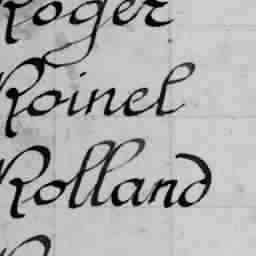 Roger
Roinel
Rolland